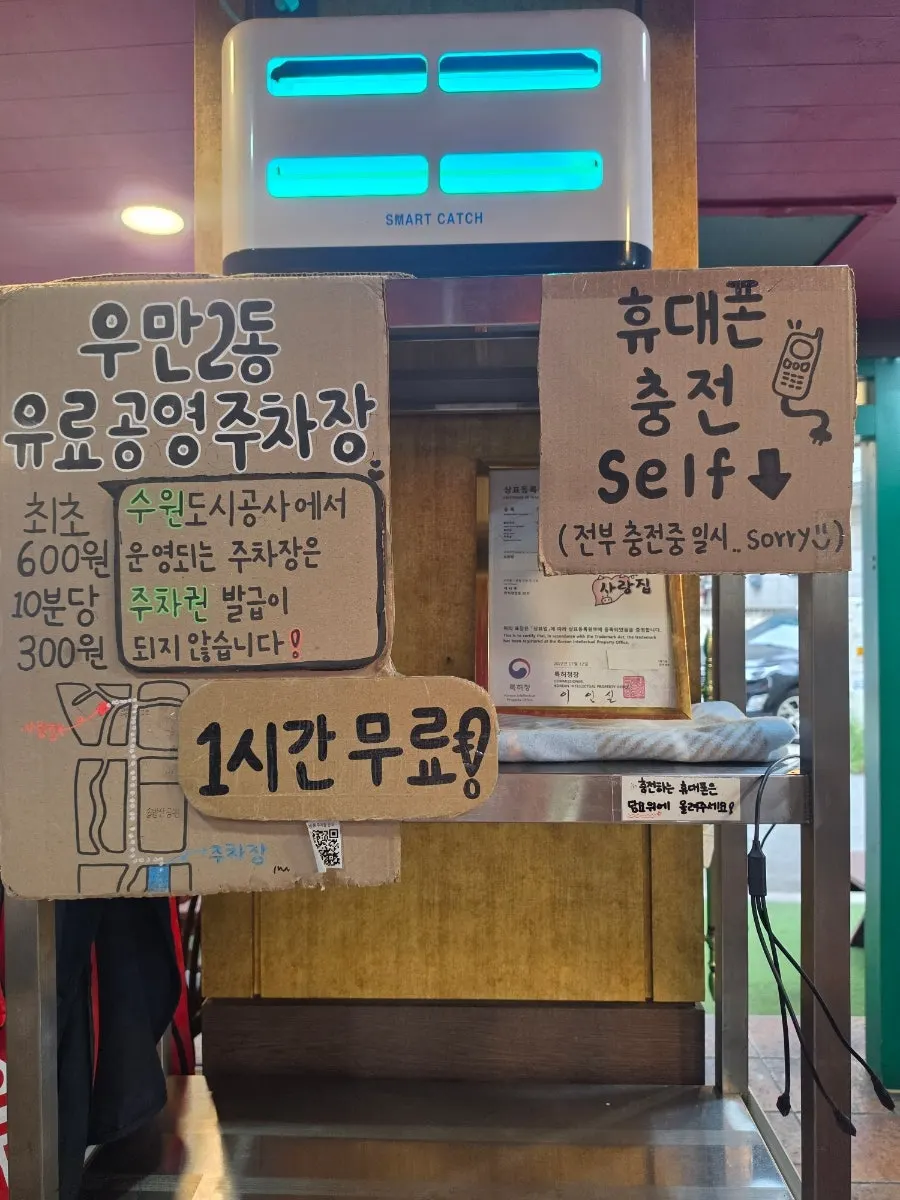 SMART CATCH
우만2동
유료공영주차장
최초
600원
10분당
300원
수원도시공사에서
운영되는 주차장은
주차권 발급이
되지 않습니다!
1시간 무료!
솔밭산공원
주차장
휴대폰
충전
Self
(전부 충전중 일시.. sorry)
상표등록
사랑집
This is to certify that, in accordance with the Trademark Act, the trademark
has been registered at the Korean Intellectual Property Office.
특허청
Korean Intellectual
Property Office
특허청장
COMMISSIONER,
KOREAN INTELLECTUAL PROPERTY OFFICE
이인실
충전하는 휴대폰은
담요위에 올려주세요!